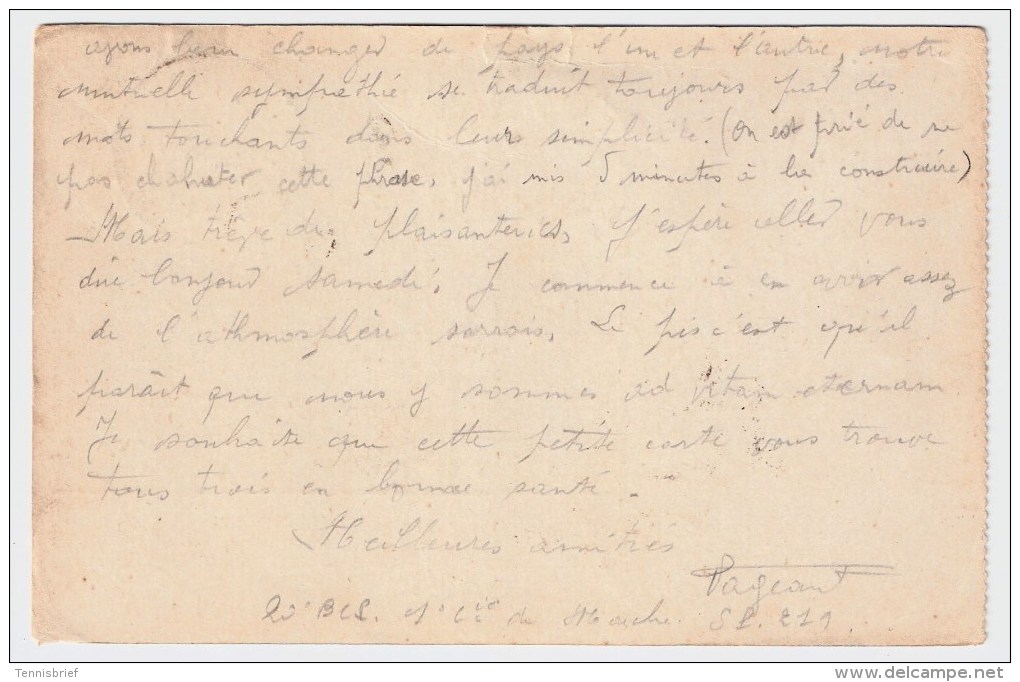 ayons beau changer de pays l'un et l'autre, notre
mutuelle sympathie se traduit toujours par des
mots touchants dans leur simplicité. (On est prié de ne
pas chahuter cette phrase, j'ai mis 5 minutes à la construire)
Mais trêve de plaisanteries, j'espère aller vous
dire bonjour samedi. Je commence à en avoir assez
de l'athmosphère sarrois. Le pis c'est qu'il
paraît que nous y sommes ad vitam aeternam
Je souhaite que cette petite carte vous trouve
tous trois en bonne santé.
Meilleures amitiés
Pageant
20e BCP. 1e Cie de Marche. SP. 219
Tennisbrief
www.delcampe.net